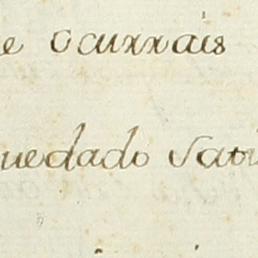 e ocurrais
uedado sati